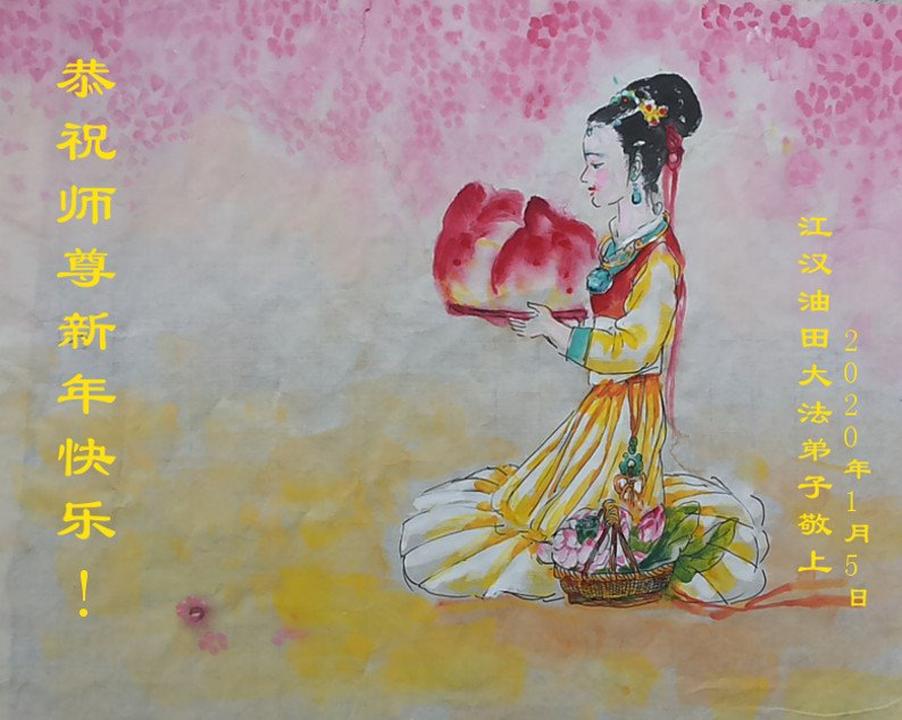 恭祝师尊新年快乐！
江汉油田大法弟子敬上
2020年1月5日